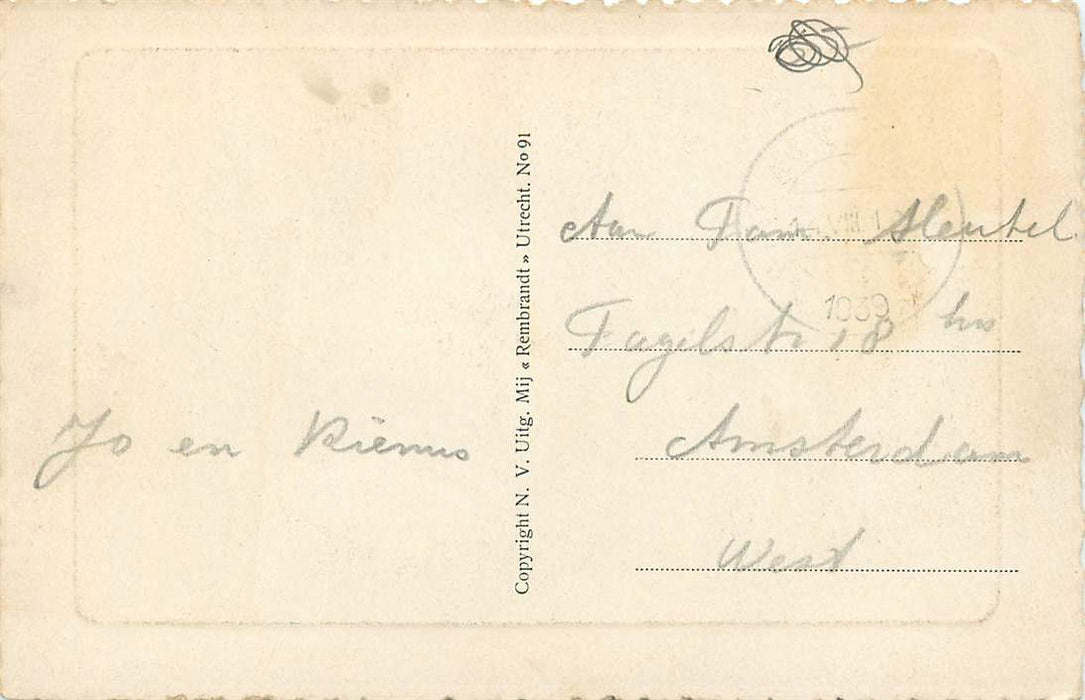 Jo en Rienus
Copyright N. V. Uitg. Mij « Rembrandt » Utrecht. No 91
Aan Fam. Sleutel
Fagelstr 18 hs
Amsterdam
West
VIII
1939